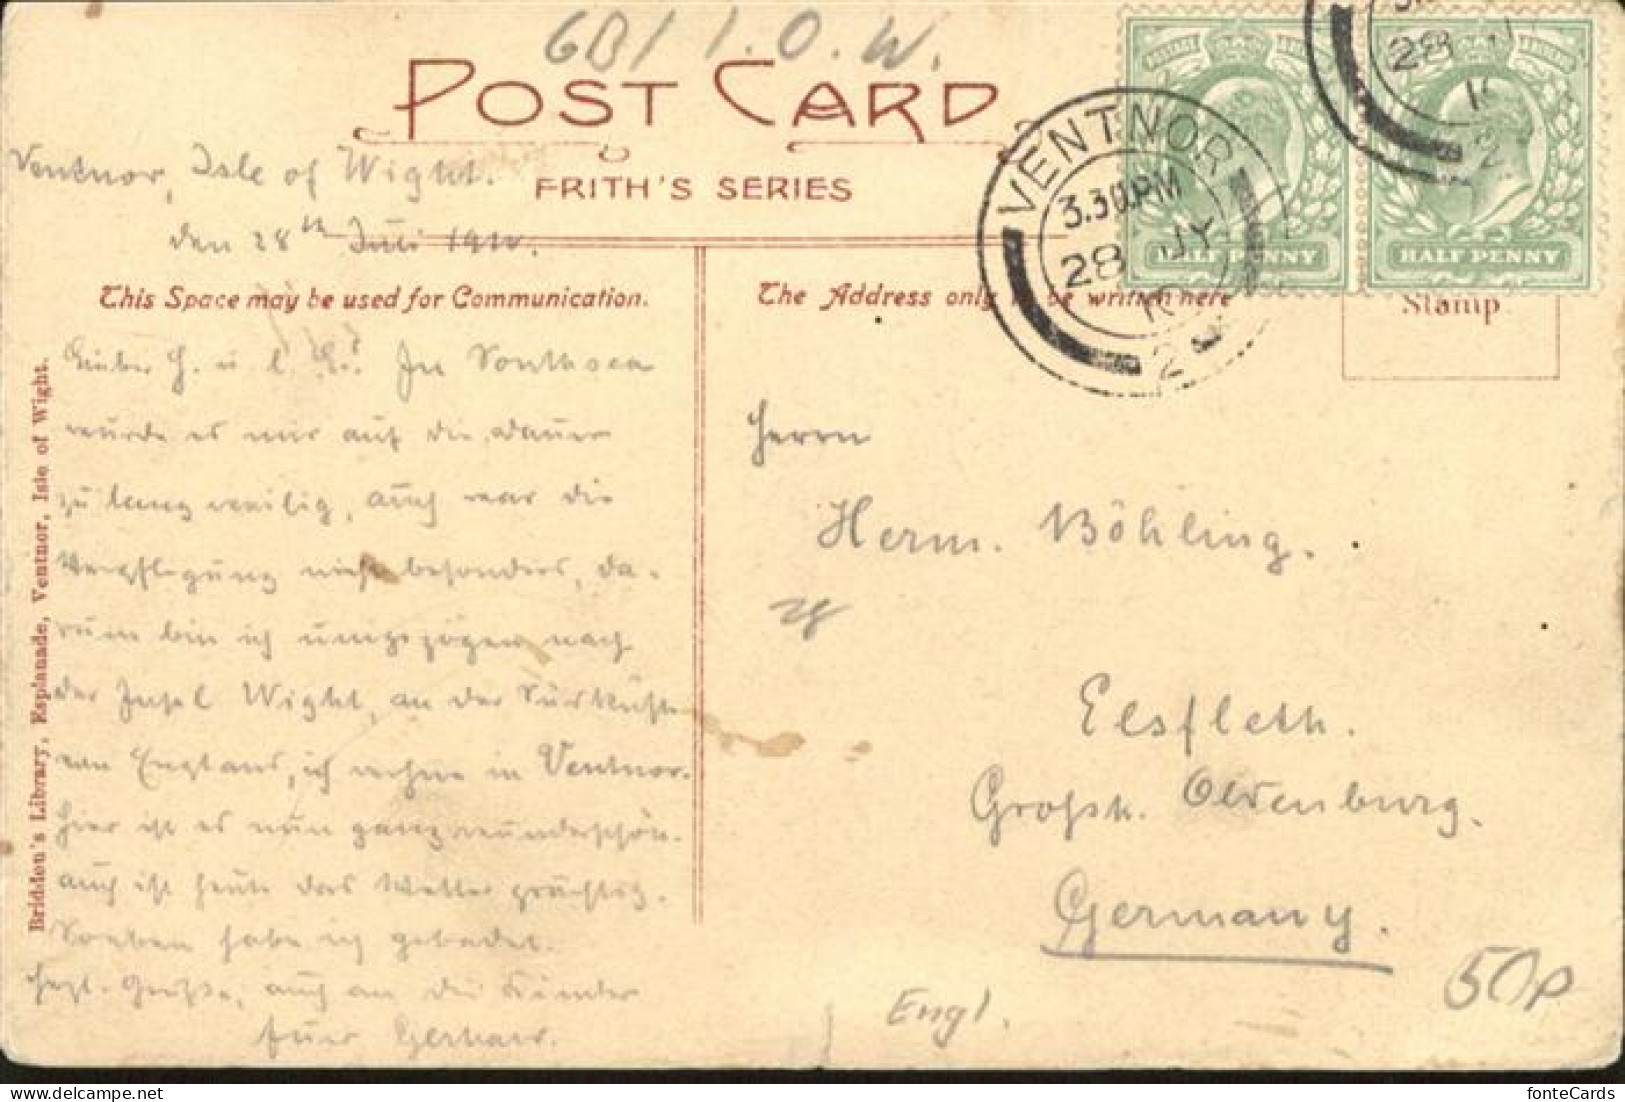 GB / I.O.W.
POST CARD
FRITH'S SERIES
Ventnor, Isle of Wight.
den 28th Juli 1910.
This Space may be used for Communication.
The Address only to be written here
Stamp
HALF PENNY
HALF PENNY
VENTNOR
3.30.PM
28 JY
10
2
28
Lieber H. u. l. In Southsea
wurde es mir auf die Dauer
zu langweilig, auch war die
Verpflegung nicht besonders, da-
rum bin ich umgezogen nach
der Insel Wight, an der Südküste
von England, ich wohne in Ventnor.
Hier ist es nun ganz wunderschön.
Auch ist heute das Wetter prächtig.
Soeben habe ich gebadet.
Herzl. Grüße, auch an die Kinder
Euer Gerhard.
Herrn
Herm. Böhling.
Elsfleth.
Grossh. Oldenburg.
Germany.
Engl.
50p
Briddon's Library, Esplanade, Ventnor, Isle of Wight.
fonteCards